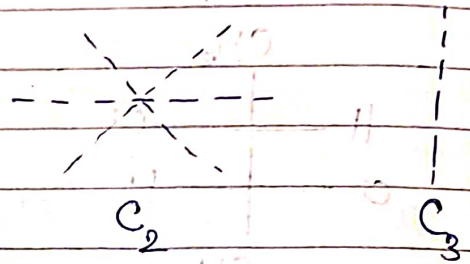 C₂ C₃